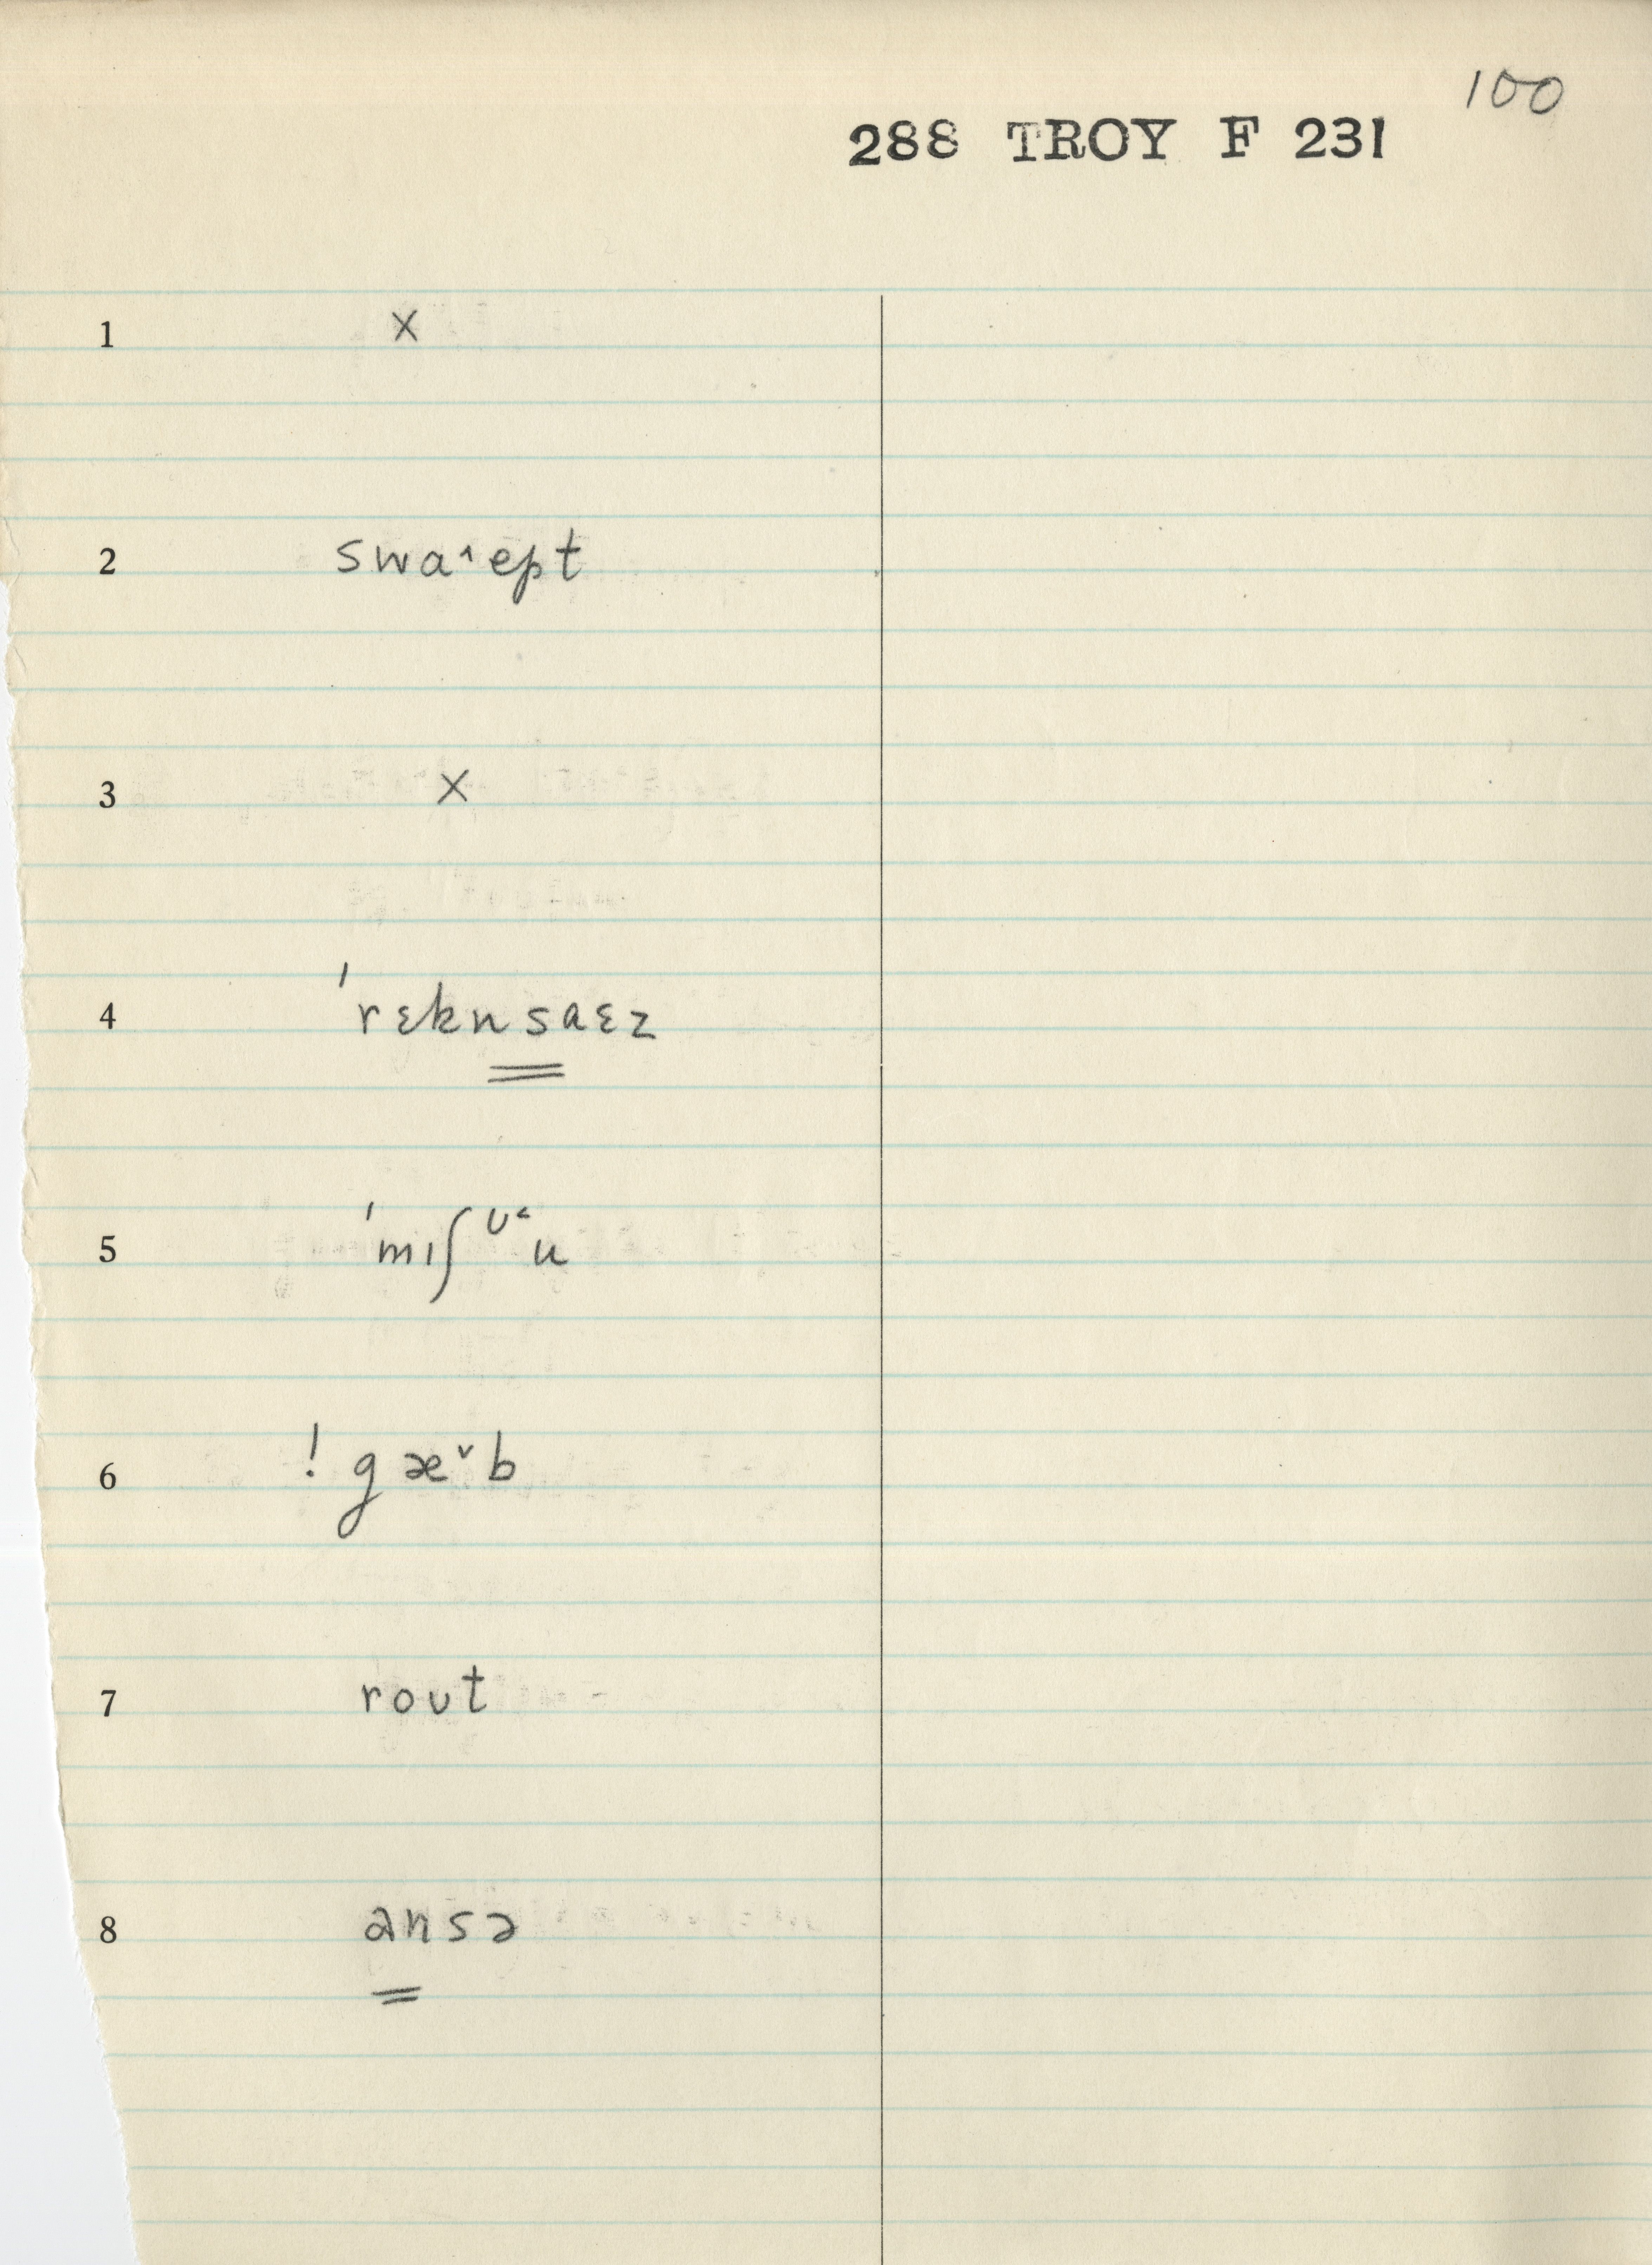 100
288 TROY F 231
1 x
2 swa˄ept
3 x
4 ˈrɛknsaɛz
5 ˈmɪʃᶷ˂u
6 ! gæ˅b
7 roʊt
8 ansə